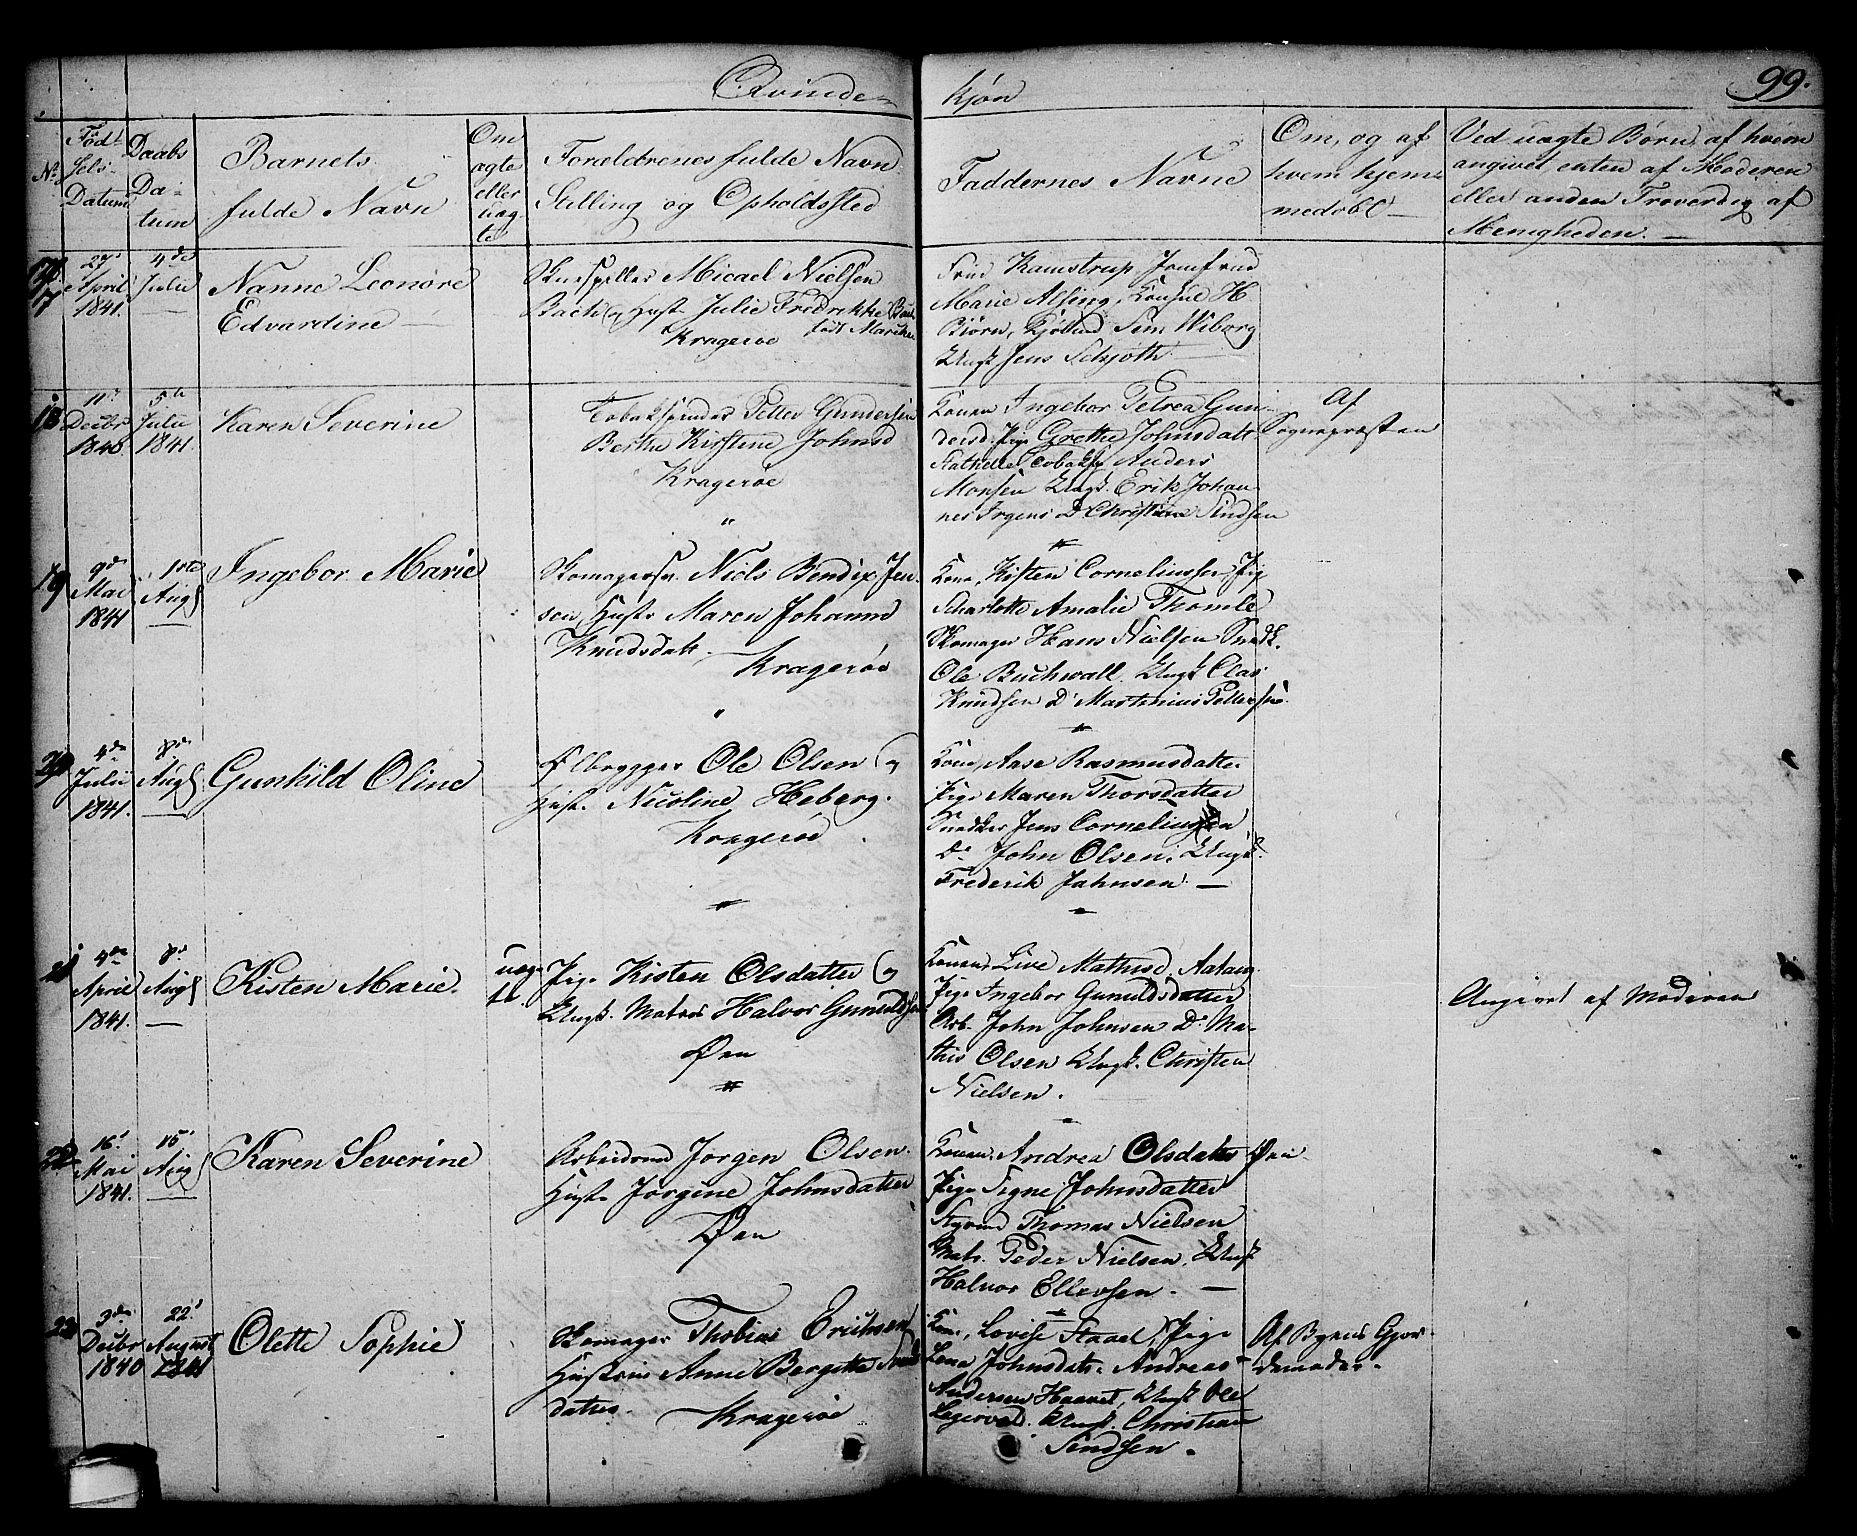 Qvinde- kjøn 99.
No Föd- sels- Datum
Daabs Da- tum
Barnets fulde Navn
Om ægte eller uæg- te
Forældrenes fulde Navn
Stilling og Opholdssted
Faddernes Navne
Om, og af hvem hjem- medøbt —
Ved uægte Børn, af hvem
angivet, enten af Moderen
eller anden Troverdig af
Menigheden. —
17 27d April 1841. 4de Julii —
Nanne Leonöre
Edvardine —
Micael Nielsen
Hust. Julie Fredrikke
Kragerøe
Kamstrup Jomfrue
Marie Alsing, Consul H
Biörn, Sem Wiborg
Ungk Jens Schjøth —
18 11d Decbr 1840 5te Julii 1841.
Karen Severine
Petter Gundersen
Berthe Kirstine Johnsd
Kragerøe
"
Konen Ingebor Petrea Gun-
dersd. Pige Grethe Johnsdatt
Anders
Monsen Ungk. Erik Johan-
nes Irgens Do Christian Sindsen
Af
Sognepræsten
19 9de Mai 1841 1ste Aug —
Ingebor Marie
Skomagersv. Niels Bendix Jen-
sen, Hustr Maren Johanne
Knudsdatt.
Kragerøe
"
Kone, Kisten Corneliussen Pig
Scharlotte Amalie Thomle
Skomager Hans Nielsen Snedk.
Ole Buchwall. Ungk Clas
Knudsen Do Marthinius Pettersen
20 4de Julii 1841. 8de Aug —
Gunhild Oline
Ølbrygger Ole Olsen og
Hust. Nicoline Heberg.
Kragerøe
Kone, Aase Rasmusdatter
Pige Maren Thorsdatter
Snedker Jens Corneliussen
Do John Olsen, Ungk.
Frederik Jahnsen. —
21 4de April 1841. 8de Aug —
Kisten Marie.
uæg- te.
Pige Kisten Olsdatter og
Ungk. Matros Halvor Gunuldsen
Øen
Konen, Live Mathisd.
Pige Ingebor Gunuldsdatter
Arb. John Johnsen Do Ma-
this Olsen Ungk. Christen
Nielsen.
Angivet af Moderen
22 16d Mai 1841. 15d Aug —
Karen Severine
Arbeidsmd Jørgen Olsen.
Hustr Jørgine Johnsdatter
Øen
Konen. Andrea Olsdatter Øen
Pige Signe Johnsdatter
Styrmd Thomas Nielsen
Matr. Peder Nielsen, Ungk
Halvor Ellevsen. —
23 3de Decbr 1840 22d August 1841
Olette Sophie
Skomager Thobias Erichsen
Hustrue Anne Bergitte
datter.
Kragerøe
Kone, Lovise Staael, Pige
Lena Johnsdatr. Andreas
Andersen Haavet, Ungk Ole
Ungk. Christian
Sindsen.
Af Byens Gjor-
demoder.